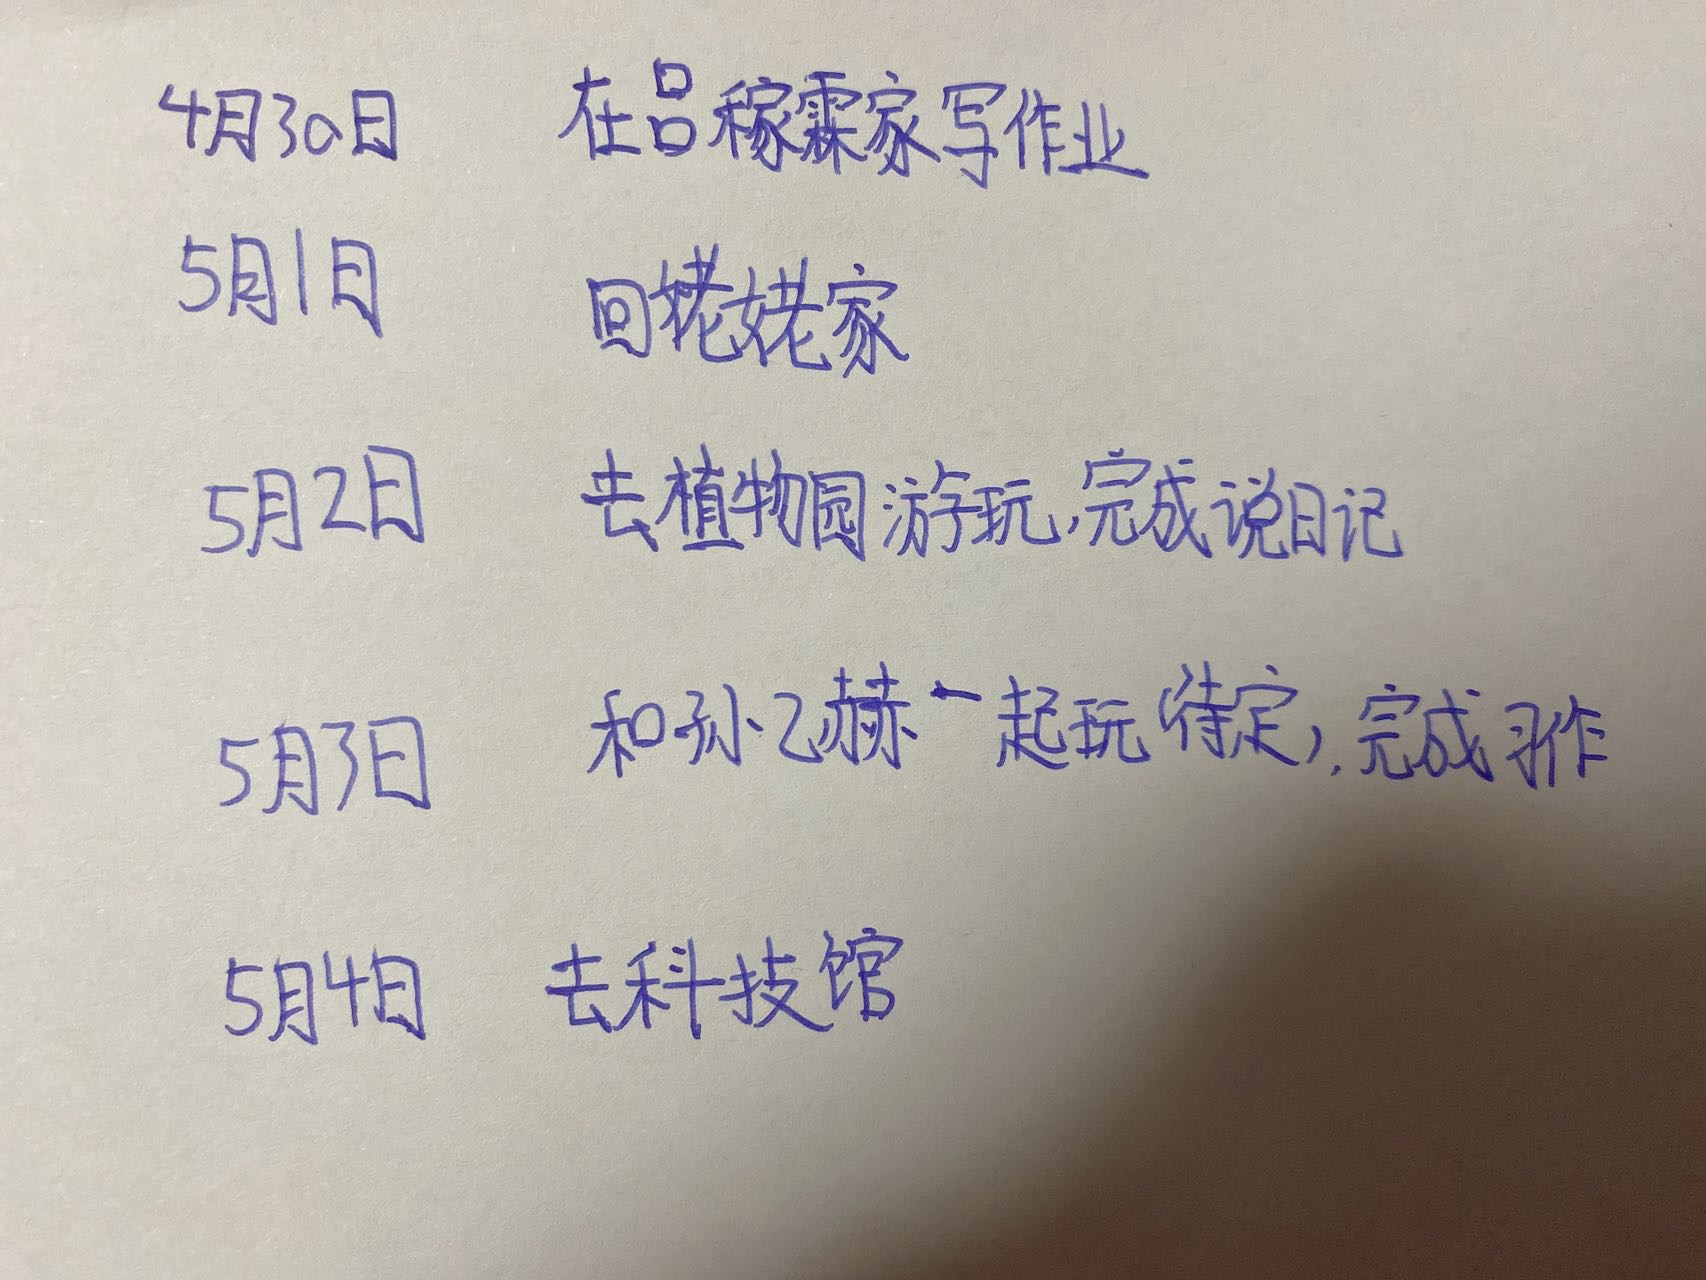 4月30日 在吕稼霖家写作业
5月1日 回姥姥家
5月2日 去植物园游玩,完成说日记
5月3日 和孙乙赫一起玩(待定),完成习作
5月4日 去科技馆